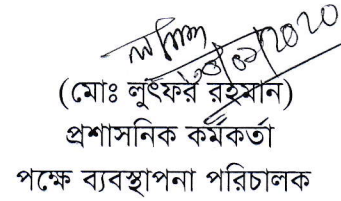 (মোঃ লুৎফর রহমান)
প্রশাসনিক কর্মকর্তা
পক্ষে ব্যবস্থাপনা পরিচালক